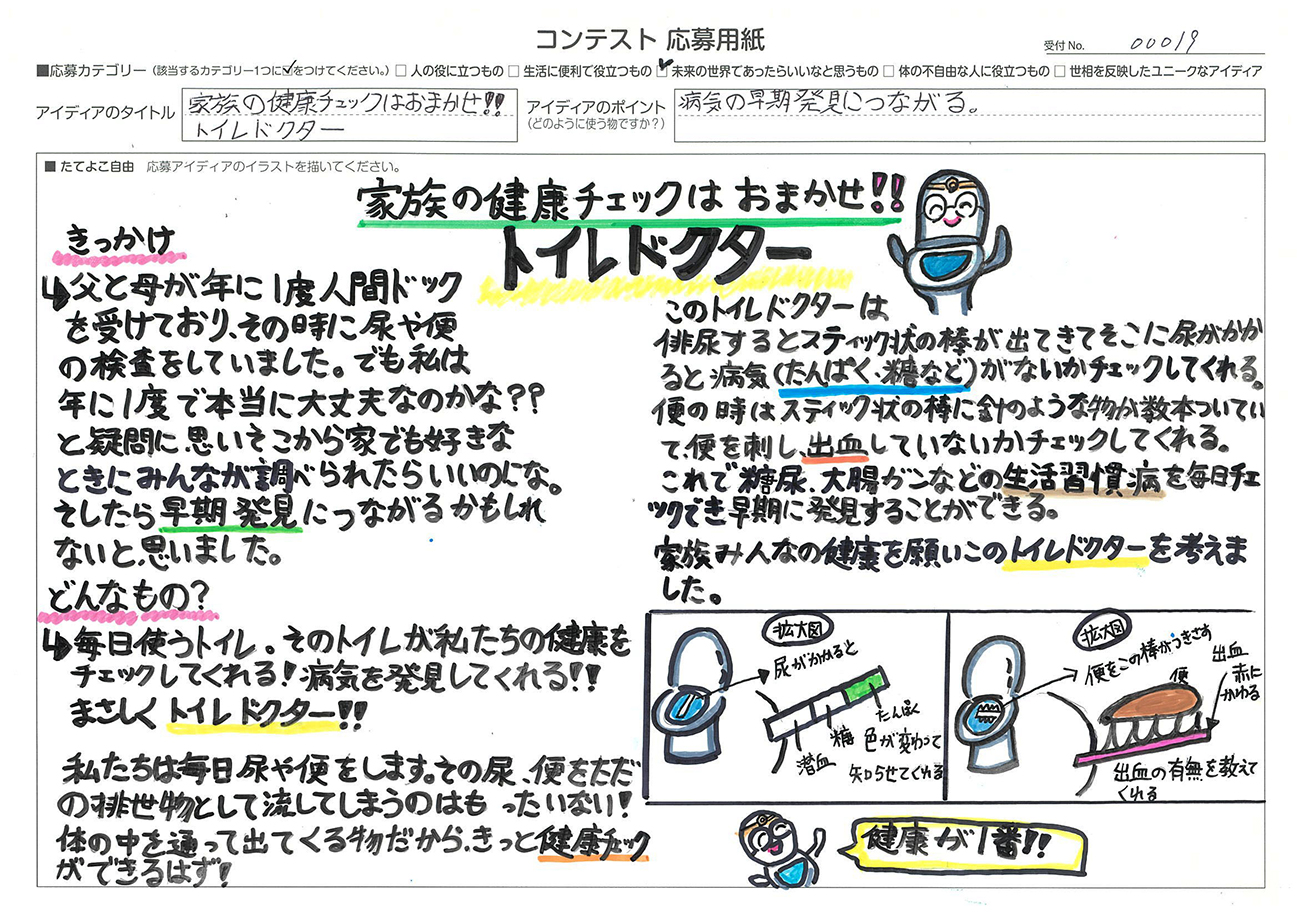 コンテスト 応募用紙
受付 No. 00019
■応募カテゴリー（該当するカテゴリー1つに☑をつけてください。）□ 人の役に立つもの □ 生活に便利で役立つもの ☑ 未来の世界であったらいいなと思うもの □ 体の不自由な人に役立つもの □ 世相を反映したユニークなアイディア
アイディアのタイトル
家族の健康チェックはおまかせ!!
トイレドクター
アイディアのポイント
（どのように使う物ですか？）
病気の早期発見につながる。
■ たてよこ自由 応募アイディアのイラストを描いてください。
家族の健康チェックは おまかせ!!
トイレドクター
きっかけ
↳父と母が年に1度人間ドック
を受けており、その時に尿や便
の検査をしていました。でも私は
年に1度で本当に大丈夫なのかな??
と疑問に思いそこから家でも好きな
ときにみんなが調べられたらいいのにな。
そしたら早期発見につながるかもしれ
ないと、思いました。
どんなもの?
↳毎日使うトイレ。そのトイレが私たちの健康を
チェックしてくれる!病気を発見してくれる!!
まさしくトイレドクター!!
私たちは毎日尿や便をします。その尿、便をただ
の排世物として流してしまうのはもったいない!
体の中を通って出てくる物だから、きっと健康チェック
ができるはず!
このトイレドクターは
俳尿するとスティック状の棒が出てきてそこに尿がかか
ると病気(たんぱく・糖など)がないかチェックしてくれる。
便の時はスティック状の棒に針のような物が数本ついてい
て、便を刺し、出血していないかチェックしてくれる。
これで糖尿、大腸ガンなどの生活習慣病を毎日チェ
ックでき早期に発見することができる。
家族みんなの健康を願いこのトイレドクターを考えま
した。
拡大図
尿がかかると
たんぱく
糖
潜血
色が変わって
知らせてくれる
拡大図
便をこの棒がつきさす
便
出血
赤に
かわる
出血の有無を教えて
くれる
健康が1番!!